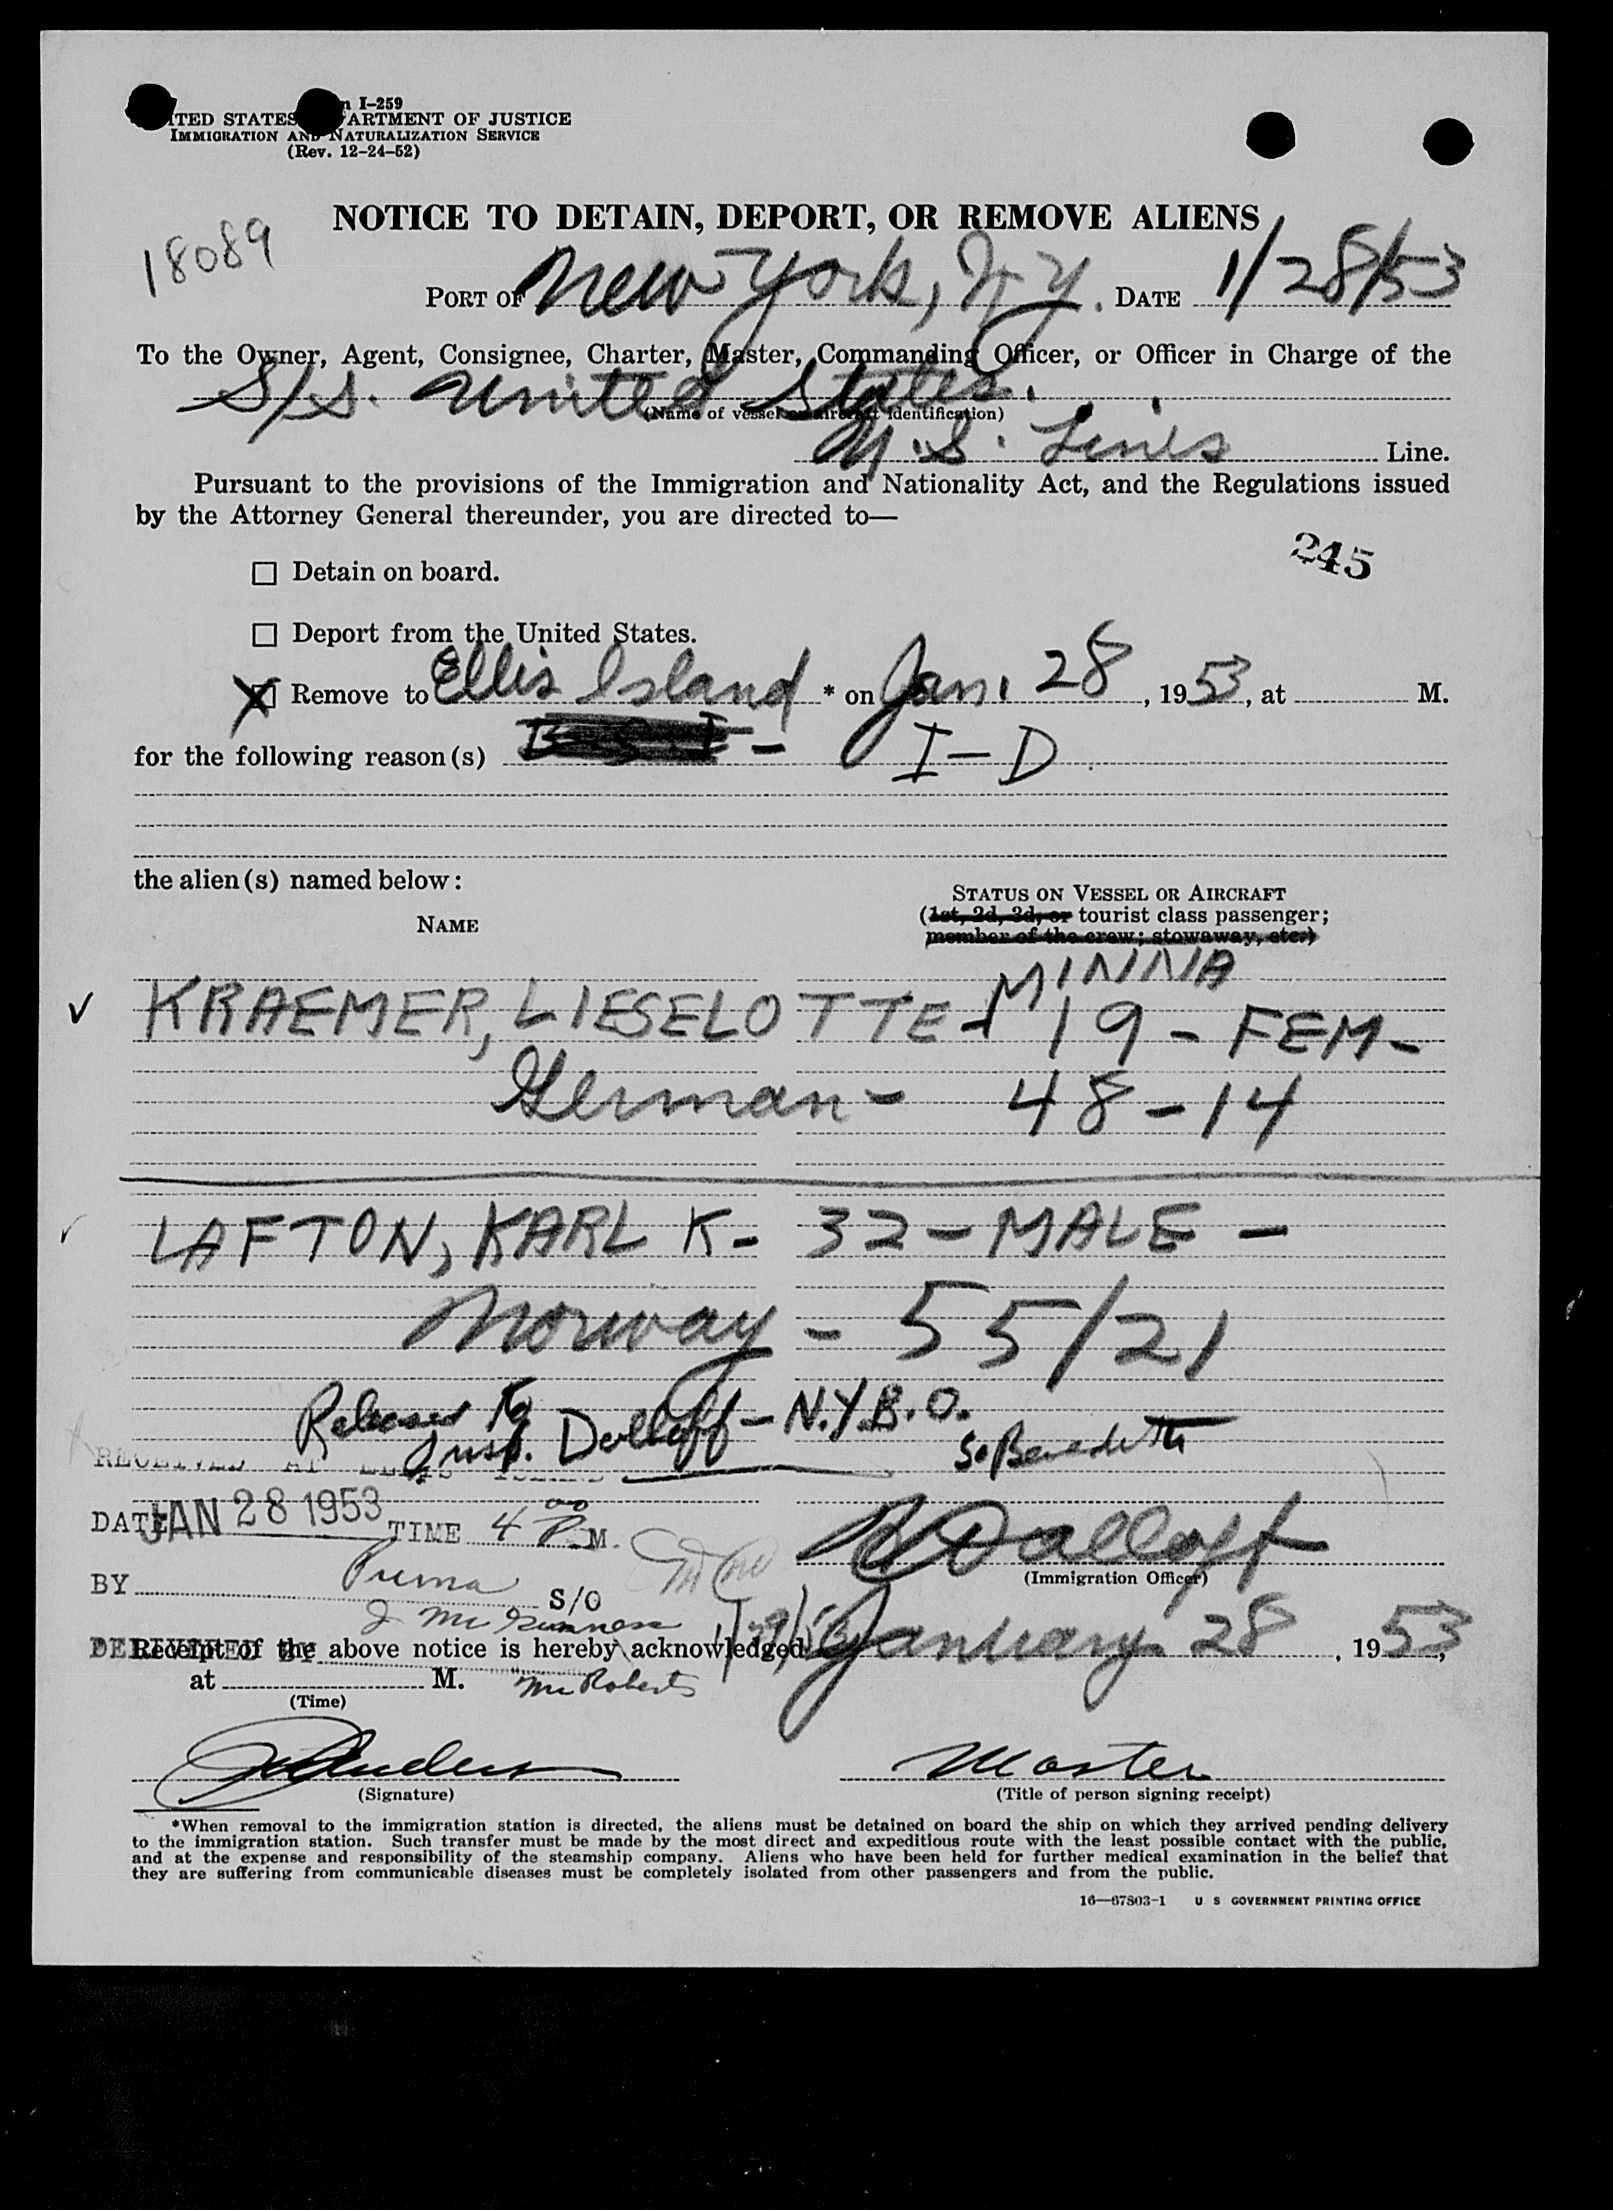 Form I-259
UNITED STATES DEPARTMENT OF JUSTICE
IMMIGRATION AND NATURALIZATION SERVICE
(Rev. 12-24-52)
18089
NOTICE TO DETAIN, DEPORT, OR REMOVE ALIENS
PORT OF New York, N.Y. DATE 1/28/53
To the Owner, Agent, Consignee, Charter, Master, Commanding Officer, or Officer in Charge of the
S/S. United States.
(Name of vessel or aircraft identification)
U.S. Lines Line.
Pursuant to the provisions of the Immigration and Nationality Act, and the Regulations issued
by the Attorney General thereunder, you are directed to—
245
☐ Detain on board.
☐ Deport from the United States.
☒ Remove to Ellis Island * on Jan. 28, 1953, at M.
for the following reason(s) - I-D
the alien(s) named below:
NAME
STATUS ON VESSEL OR AIRCRAFT
(1st, 2d, 3d, or tourist class passenger;
member of the crew; stowaway, etc.)
MINNA
KRAEMER, LIESELOTTE - 19 - FEM -
German - 48-14
LAFTON, KARL K - 32 - MALE -
Norway - 55/21
Released to
Insp. Dolloff - N.Y.B.O.
S. Benedetti
RECEIVED AT ELLIS
DATE JAN 28 1953 TIME 4 00 P.M.
Dolloff
(Immigration Officer)
BY S/O
DELIVERED BY
Receipt of the above notice is hereby acknowledged January 28, 1953,
at M. Mr Roberts
(Time)
(Signature)
Master
(Title of person signing receipt)
*When removal to the immigration station is directed, the aliens must be detained on board the ship on which they arrived pending delivery
to the immigration station. Such transfer must be made by the most direct and expeditious route with the least possible contact with the public,
and at the expense and responsibility of the steamship company. Aliens who have been held for further medical examination in the belief that
they are suffering from communicable diseases must be completely isolated from other passengers and from the public.
16—67803-1 U S GOVERNMENT PRINTING OFFICE